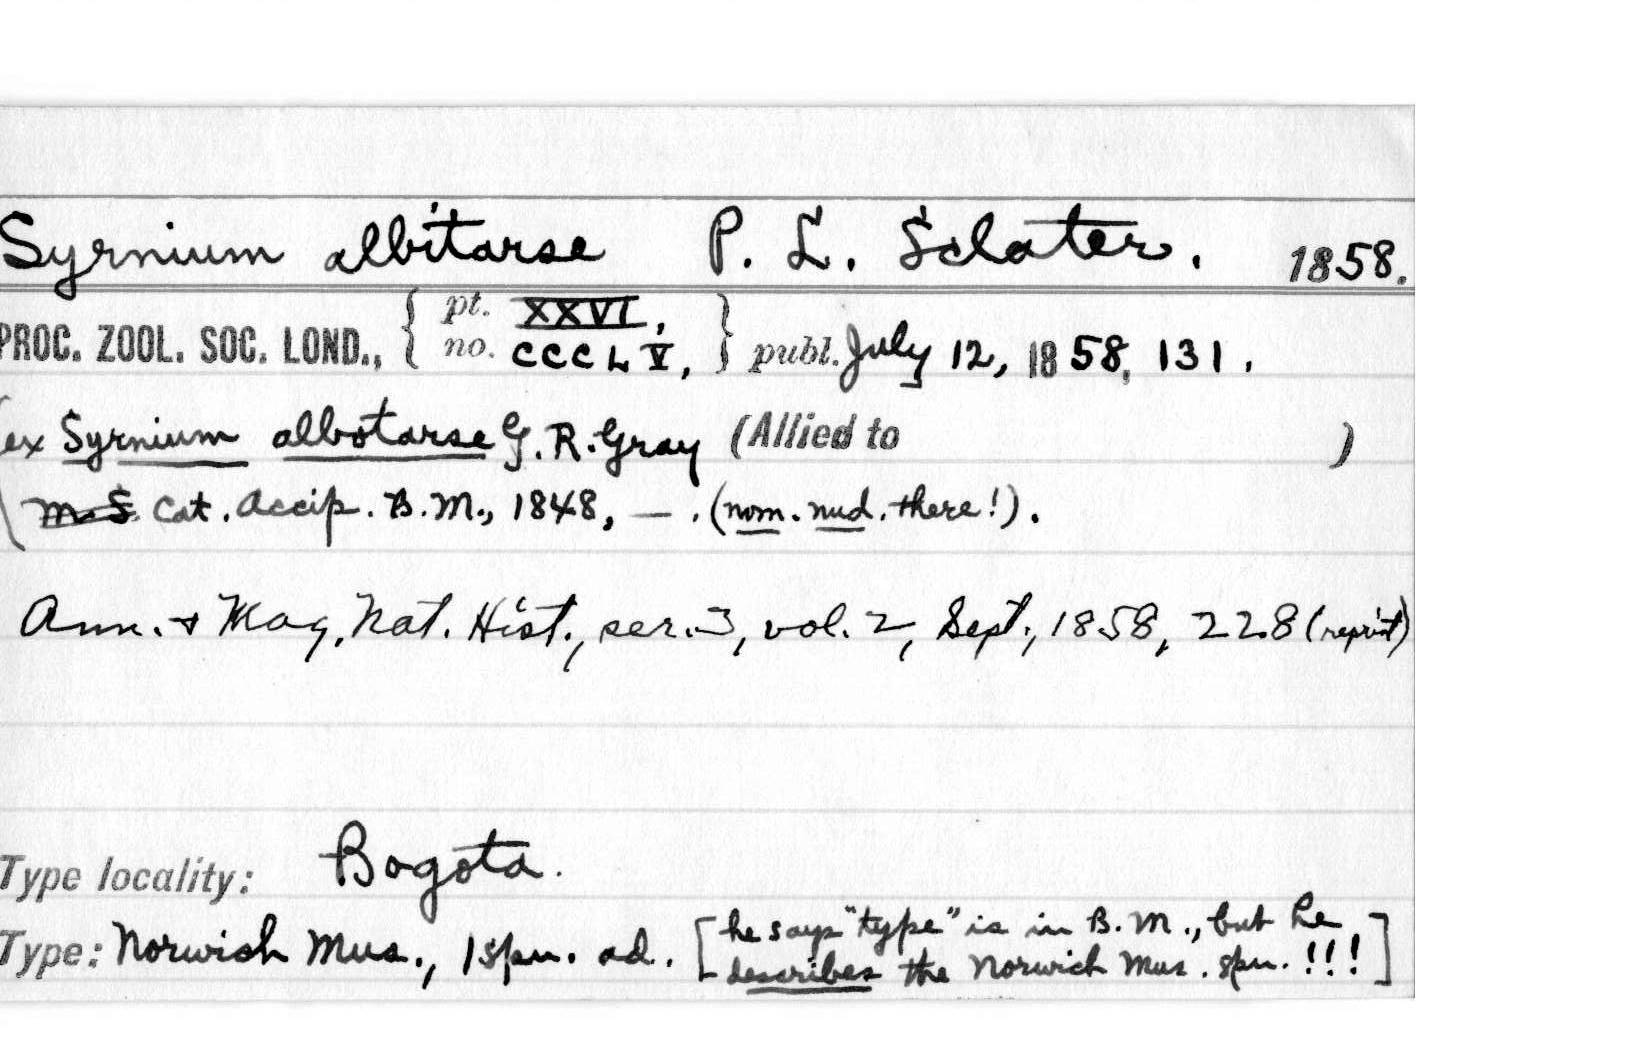 Syrnium albitarse P. L. Sclater. 1858.
PROC. ZOOL. SOC. LOND., { pt. XXVI, no. CCCLV, } publ. July 12, 1858, 131.
(ex Syrnium albotarse G. R. Gray (Allied to )
M.S. Cat. Accip. B.M., 1848, — . (nom. nud. there!).
Ann. + Mag. Nat. Hist., ser. 3, vol. 2, Sept., 1858, 228 (reprint)
Type locality: Bogota.
Type: Norwich Mus., 1 spm. ad. [he says "type" is in B.M., but he
describes the Norwich Mus. spm. !!!]